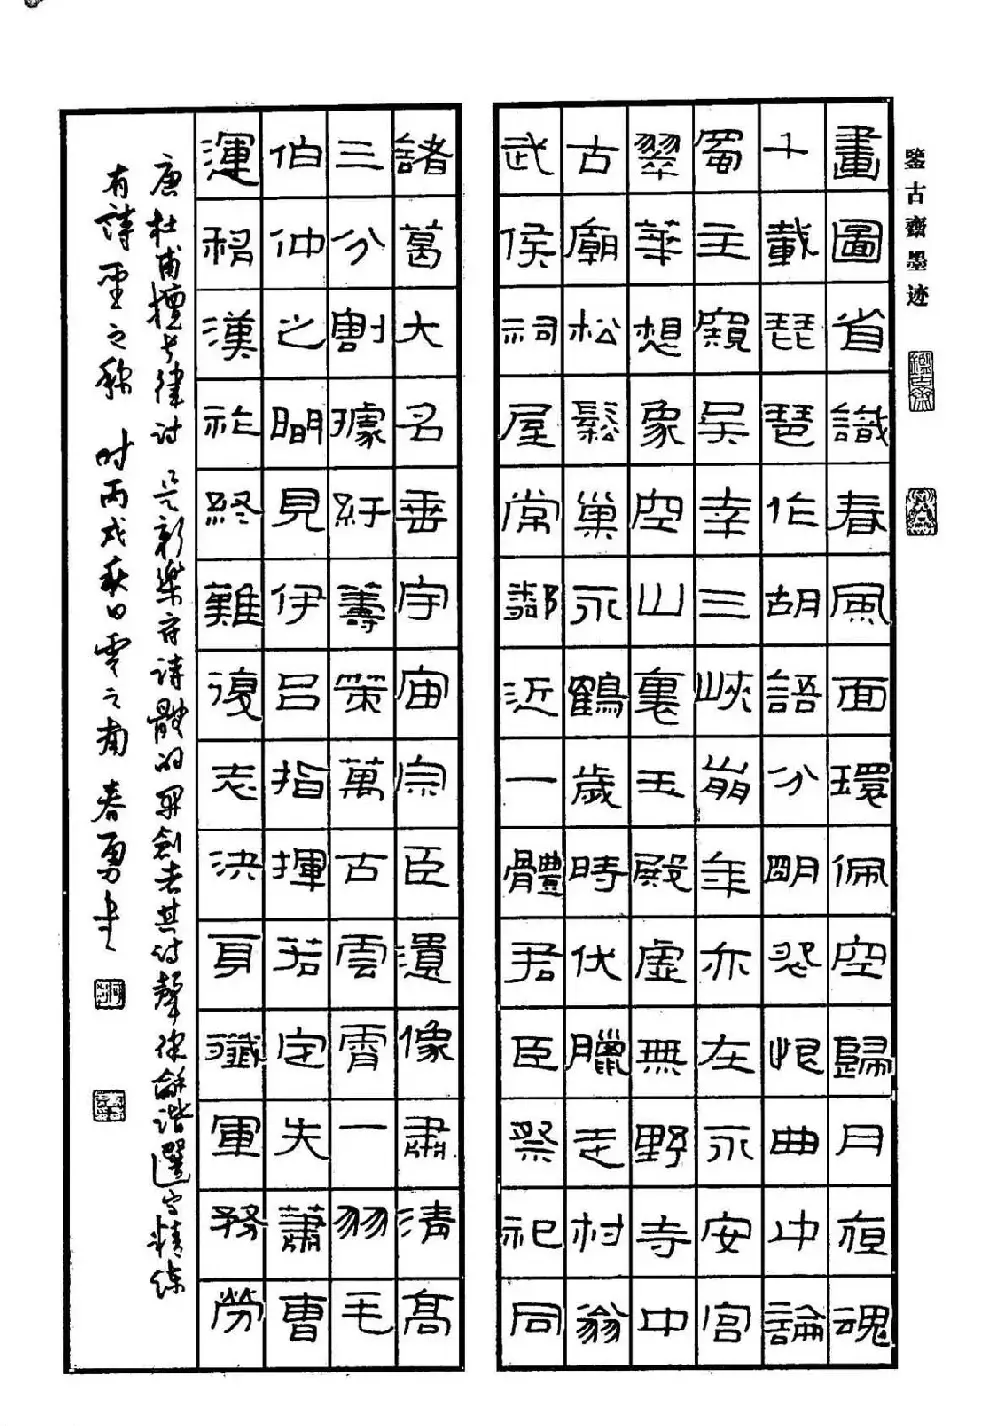 鑒古齋墨迹
畫圖省識春風面環佩空歸月夜魂
千載琵琶作胡語分明怨恨曲中論
蜀主窺吳幸三峽崩年亦在永安宮
翠華想象空山裏玉殿虛無野寺中
古廟松鬆巢永鶴歲時伏臘走村翁
武侯祠屋常鄰近一體君臣祭祀同
諸葛大名垂宇宙宗臣遺像肅清高
三分割據紆籌策萬古雲霄一羽毛
伯仲之間見伊呂指揮若定失蕭曹
運移漢祚終難復志決身殲軍務勞
唐杜甫擅長律詩是新樂府詩體的開創者其詩聲律和諧選字精練
有詩聖之稱时丙戌秋日雲之南春勇書